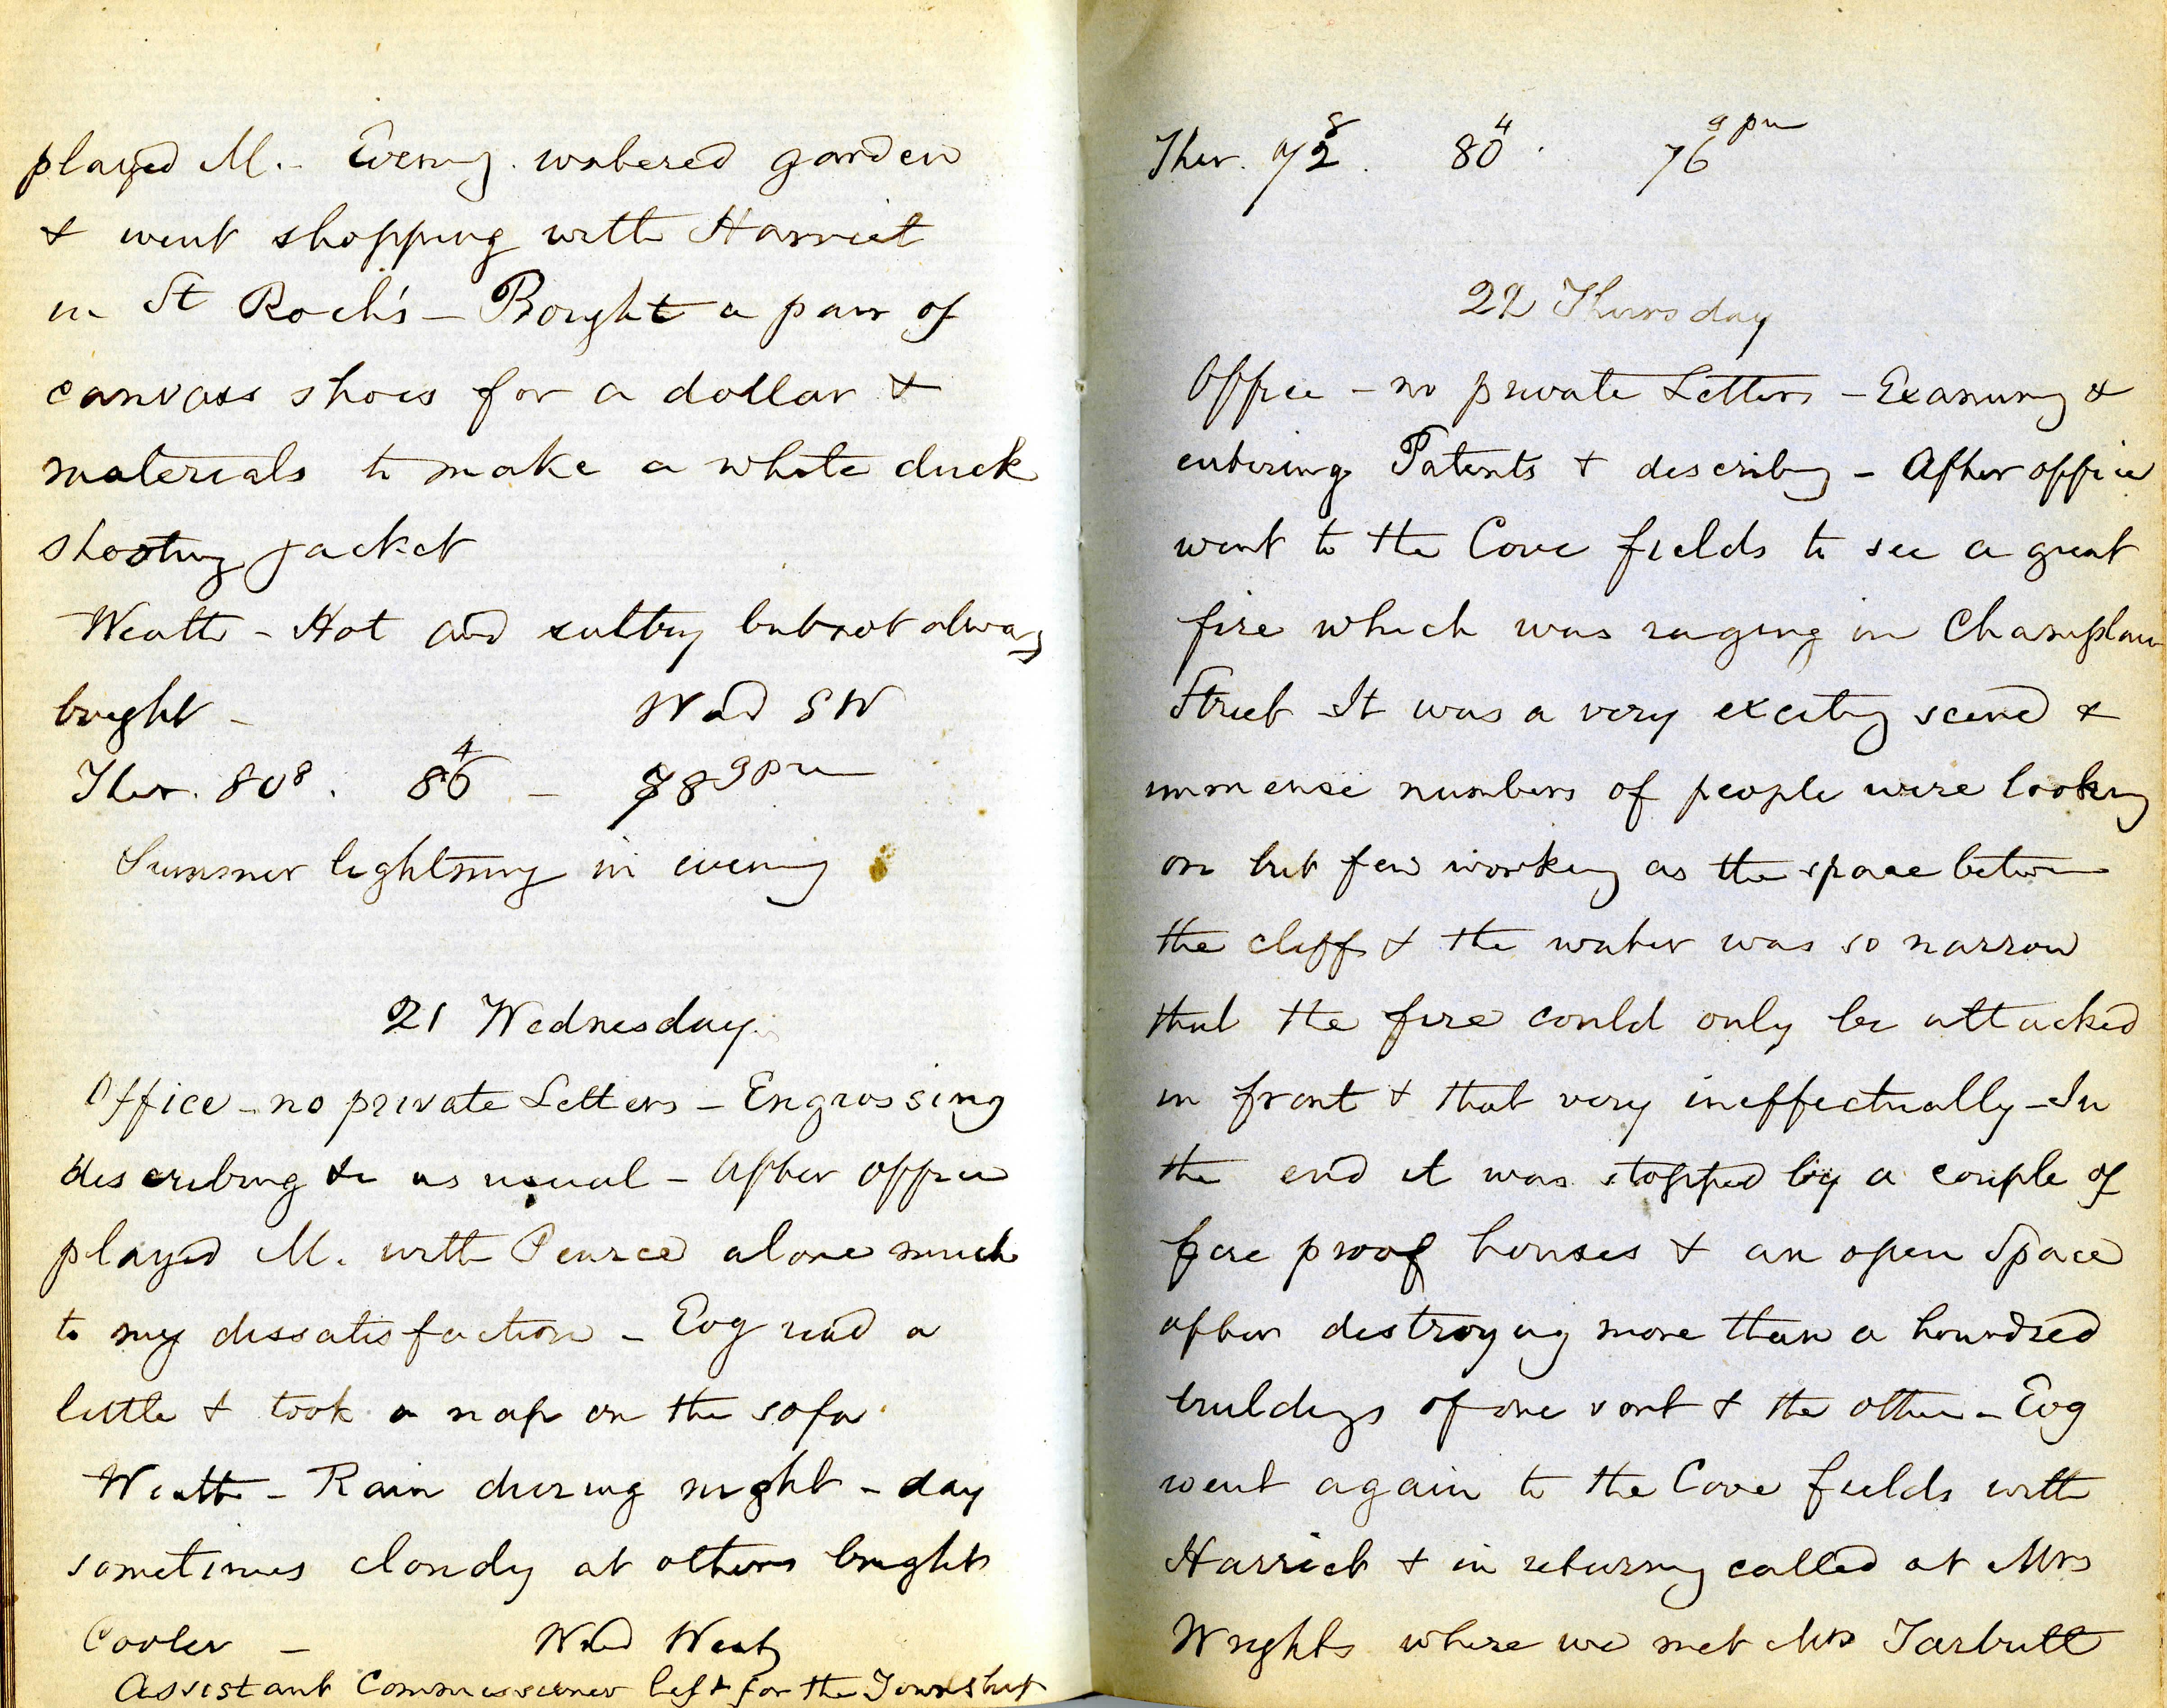 played M. - Evening. watered garden
& went shopping with Harriet
in St Roch's - Bought a pair of
canvass shoes for a dollar &
materials to make a white duck
shooting jacket
Weath - Hot and sultry but not always
bright - Wind SW
Ther. 80 8 . 86 4 - 78 9 pm
Summer lightning in evening
21 Wednesday.
Office - no private Letters - Engrossing
describing &c as usual - After office
played M. with Pearce alone much
to my dissatisfaction - Evg read a
little & took a nap on the sofa
Weath - Rain during night - day
sometimes cloudy at others bright
Cooler - Wind West
Assistant Commissioner left for the Townships
Ther. 72 8 . 80 4 . 76 9 pm
22 Thursday
Office - no private Letters - Examining &
entering Patents & describing - After office
went to the Cove fields to see a great
fire which was raging in Champlain
Street - It was a very exciting scene &
immense numbers of people were looking
on but few working as the space between
the cliff & the water was so narrow
that the fire could only be attacked
in front & that very ineffectually - In
the end it was stopped by a couple of
fire proof houses & an open space
after destroying more than a houndred
buildings of one sort & the other - Evg
went again to the Cove fields with
Harriet & in returning called at Mrs
Wrights where we met Mrs Tarbutt